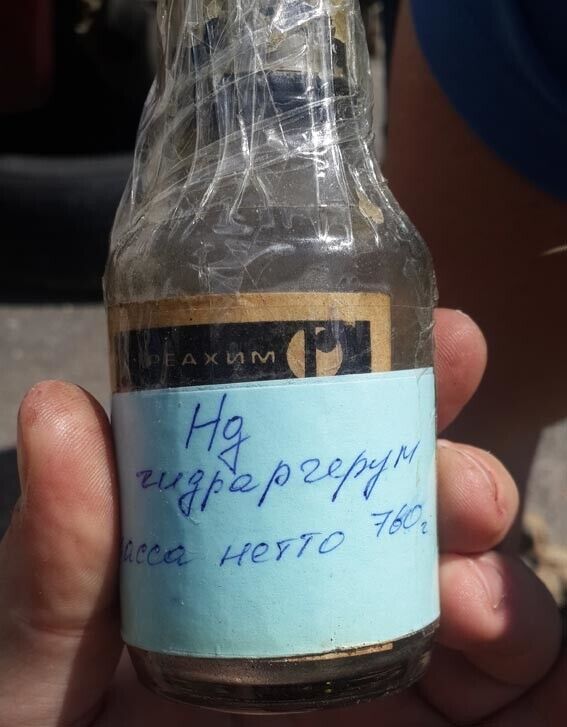 РЕАХИМ
Hg
гидраргерум
масса нетто 760г